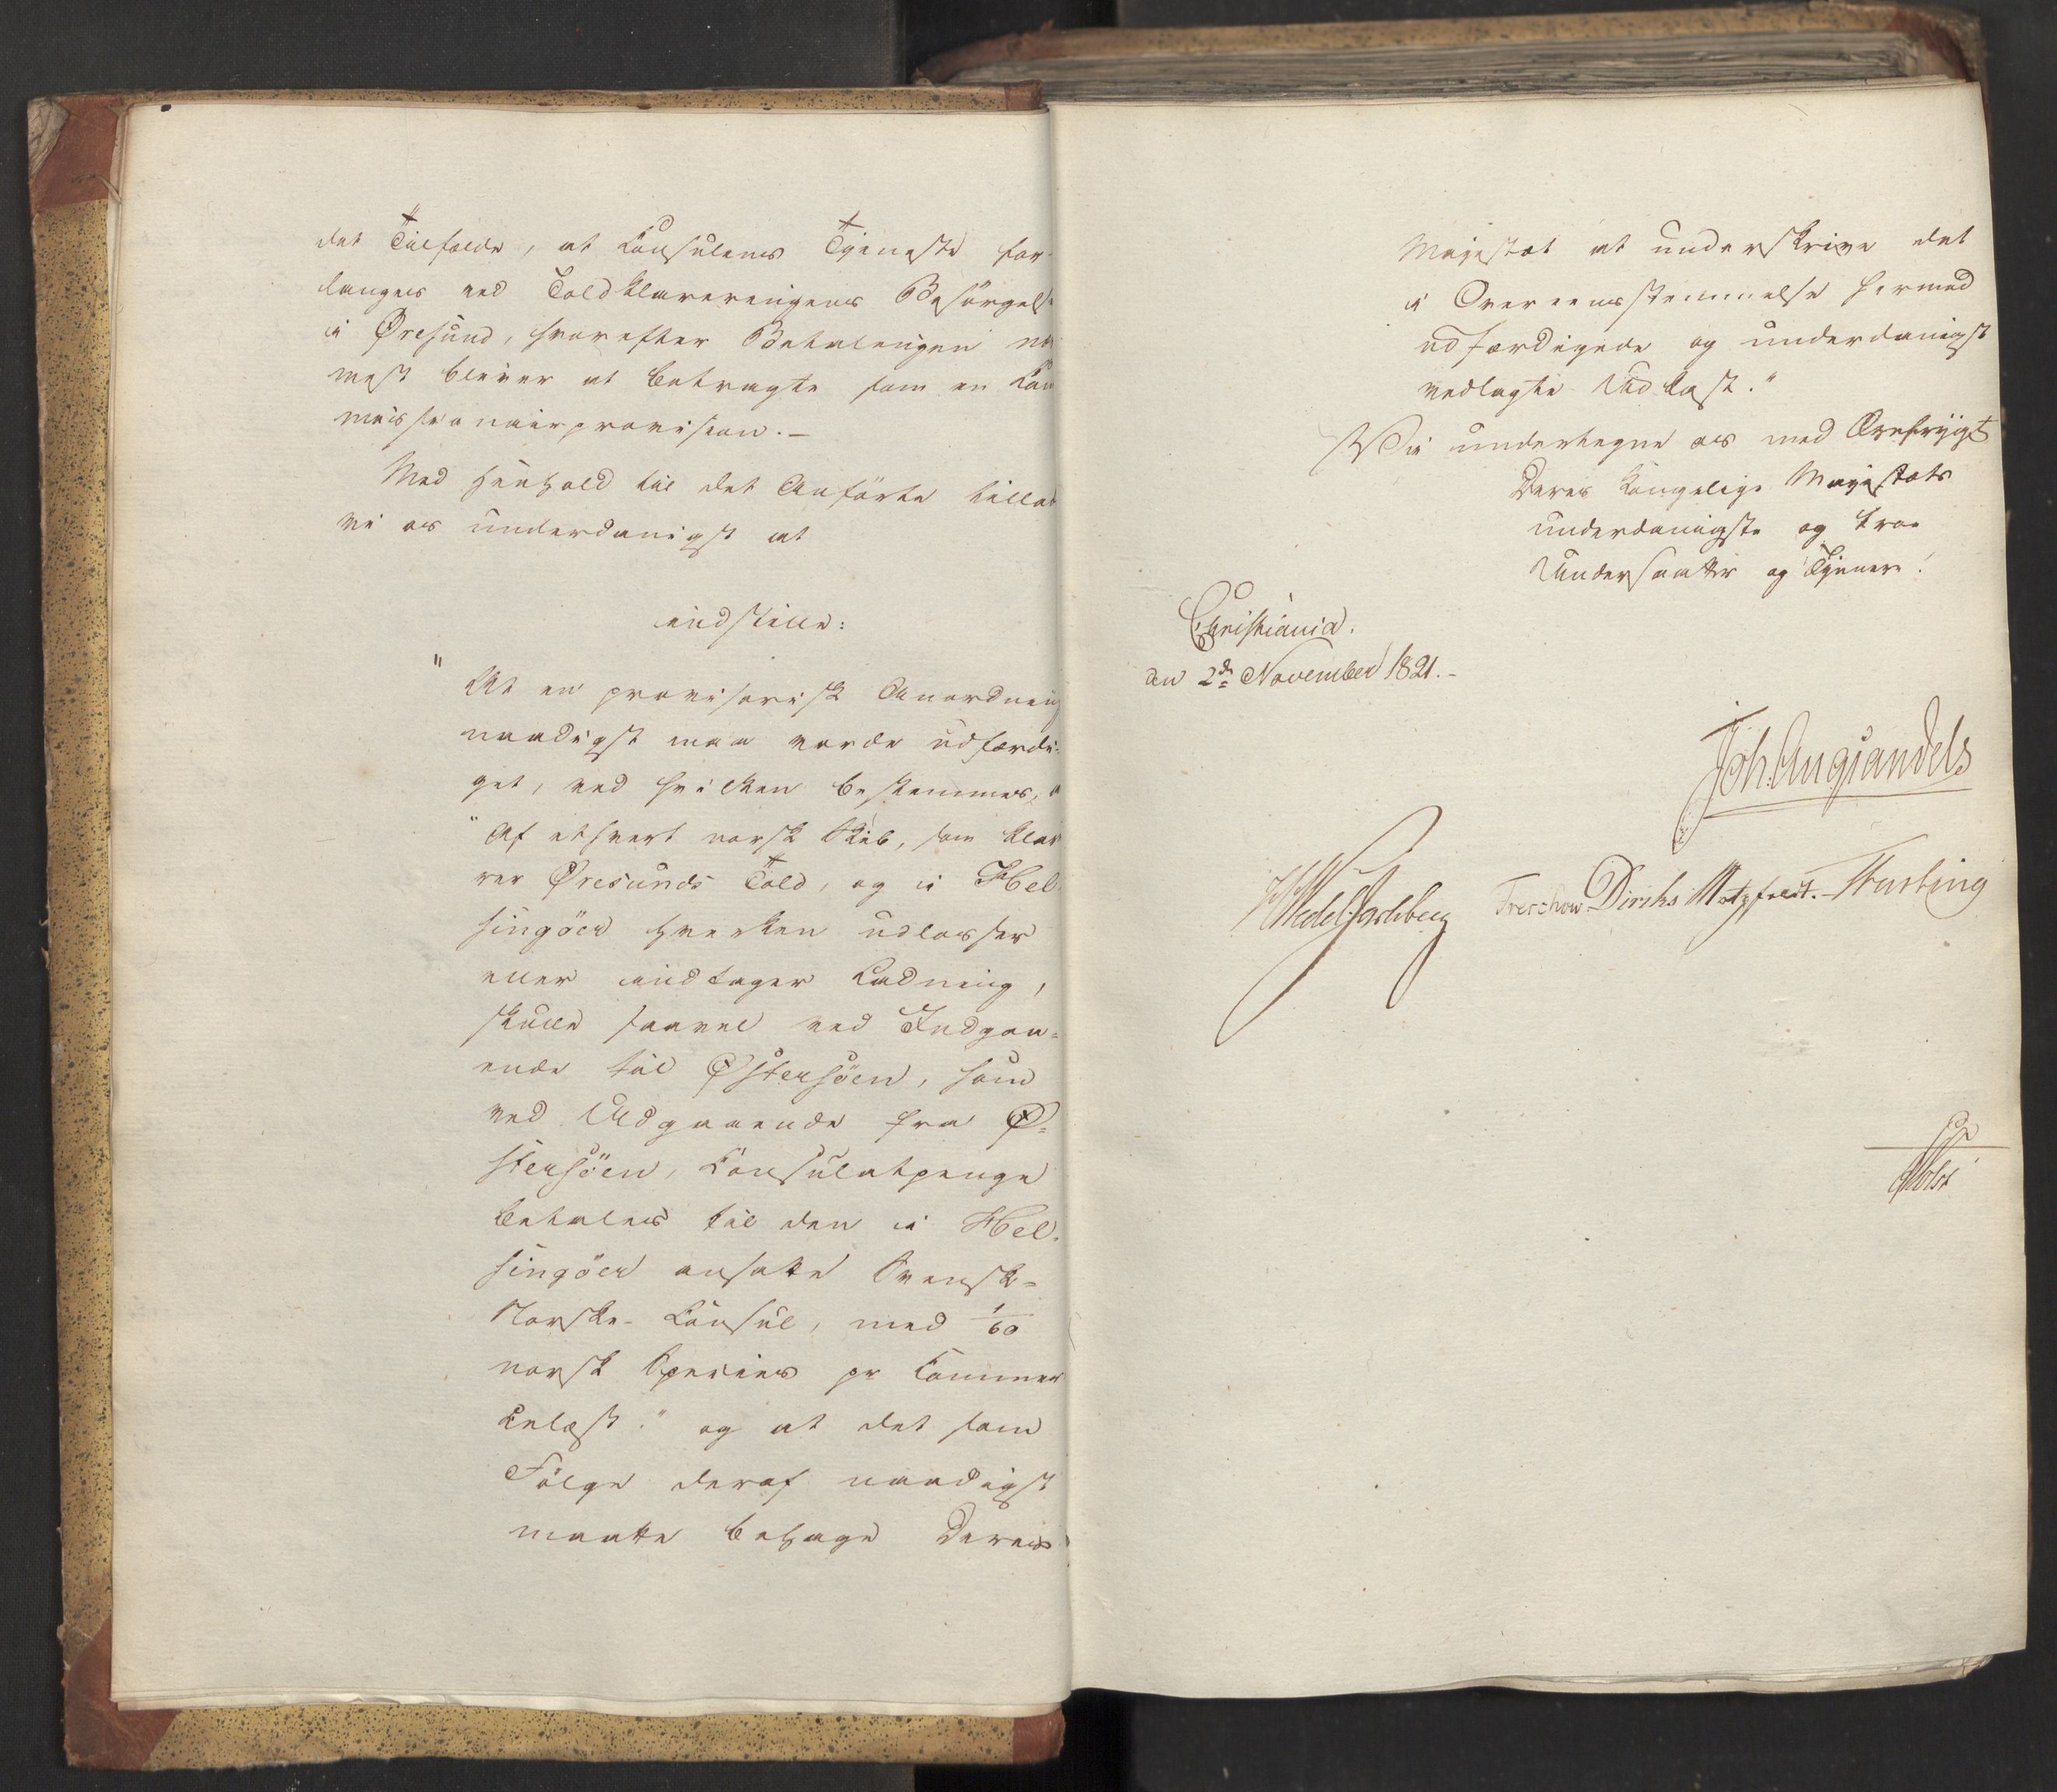 det Tilfælde, at Consulens Tjeneste for-
langes ved Toldklareringens Besörgelse
i Øresund, hvorefter Betalingen næ
mest bliver at betragte som en Com
missionairprovision.-
Med Henhold til det Anförte tillade
vi os underdanigst at
indstille:
"At en provisorisk Anordning
naadigst maa vorde udfærdi-
get, ved hvilken bestemmes, at
"Af ethvert norsk Skib, som klar
rer Øresunds Told, og i Hel
singöer hverken udlosser
eller indtager Ladning,
skulle saavel ved Indgaa-
ende til Østersöen, som
ved Udgaaende fra Ø-
stersöen, Consulatpenge
betales til den i Hel-
singöer ansatte Svensk-
Norske-Consul, med 1/60
norsk Species pr Commer
celæst." og at det som
Fölge deraf naadigst
maatte behage Deres
Majestæt at underskrive det
i Overeensstemmelse hermed
udfærdigede og underdanigst
vedlagte Udkast."
Vi undertegne os med Ærefrygt
Deres Kongelige Majestæts
underdanigste og troe
Undersaatter og Tjenere.
Christiania.
den 2de November 1821.-
Joh. Aug. Sandels
HWedel Jarlsberg Treschow Diriks Motzfeldt.- Fasting
Holst